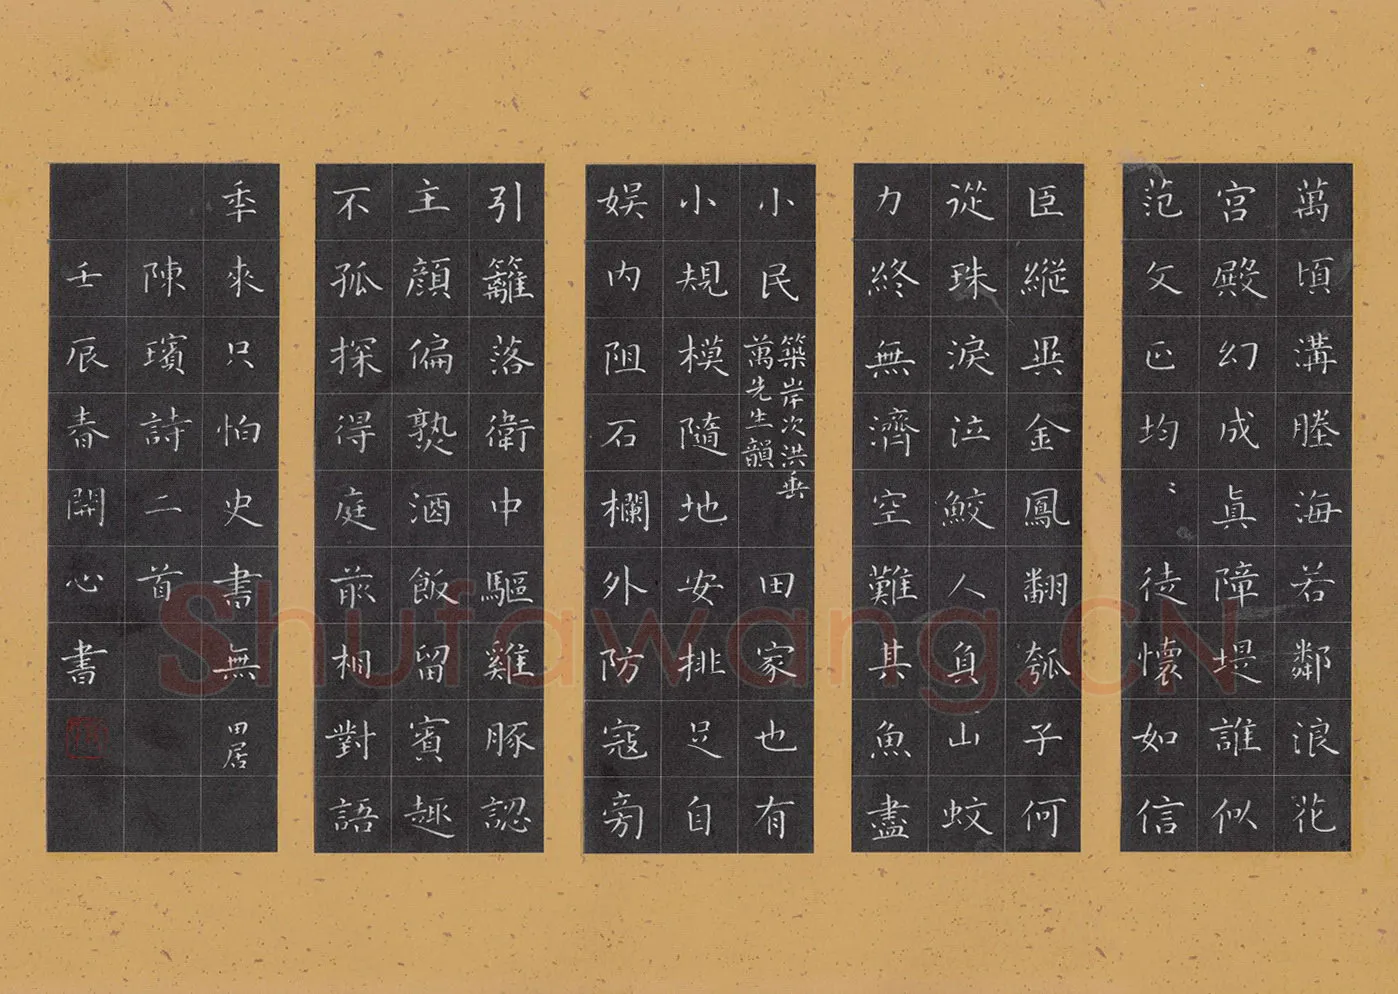 萬頃溝塍海若鄰浪花
宮殿幻成真障堤誰似
范文正均〻徒懷如信
臣縱異金鳳翻瓠子何
從珠淚泣鮫人負山蚊
力終無濟空難其魚盡
小民
築岸次洪垂
萬先生韻
田家也有
小規模隨地安排足自
娛內阻石欄外防寇旁
引籬落衛中驅雞豚認
主顏偏熟酒飯留賓趣
不孤探得庭前相對語
秊來只怕史書無
田居
陳璸詩二首
壬辰春開心書
Shufawang.CN